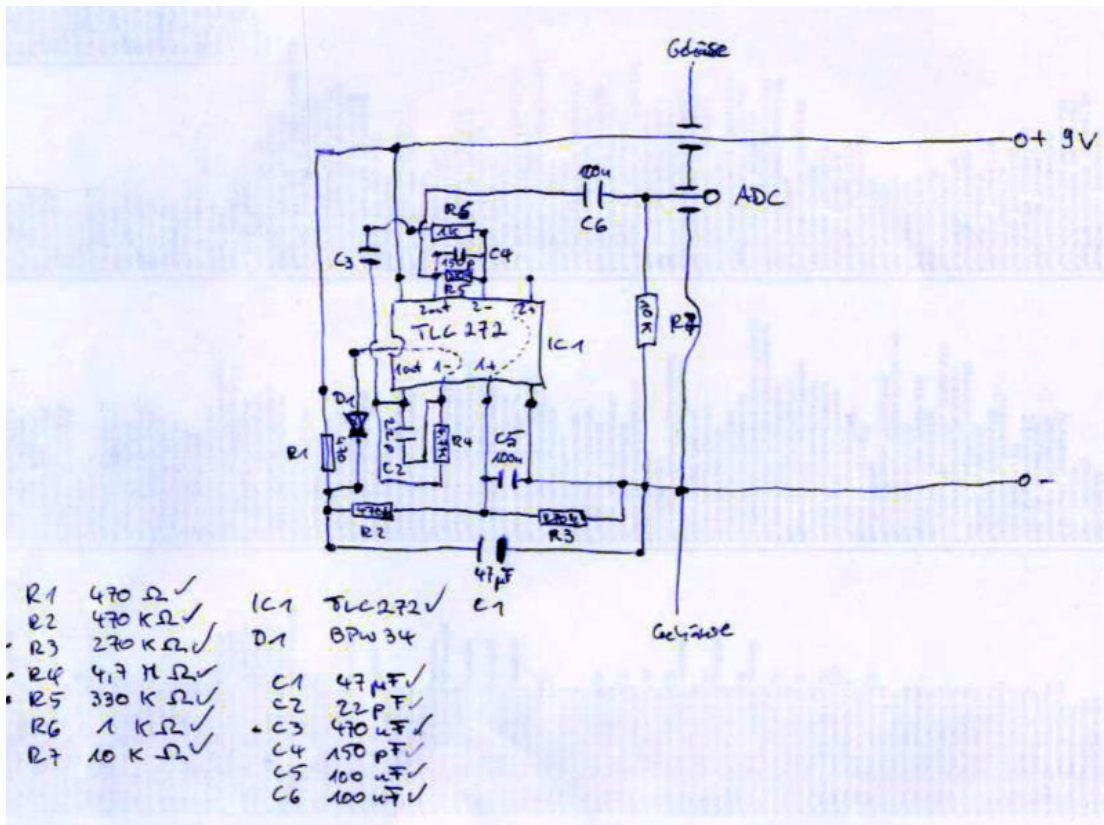 Gehäuse
0+ 9V
100n
C6
ADC
R6
1K
C3
C4
R5
2out 2- 2+
TLC 272
IC1
10K
R7
1out 1- 1+
D1
R1
C2
R4
C5
100n
0-
R2
R3
47µF
C1
Gehäuse
R1 470 Ω ✓
R2 470 KΩ ✓
R3 270 KΩ ✓
R4 4,7 MΩ ✓
R5 330 KΩ ✓
R6 1 KΩ ✓
R7 10 KΩ ✓
IC1 TLC272 ✓
D1 BPW34
C1 47 µF ✓
C2 22 pF ✓
C3 470 nF ✓
C4 150 pF ✓
C5 100 nF ✓
C6 100 nF ✓